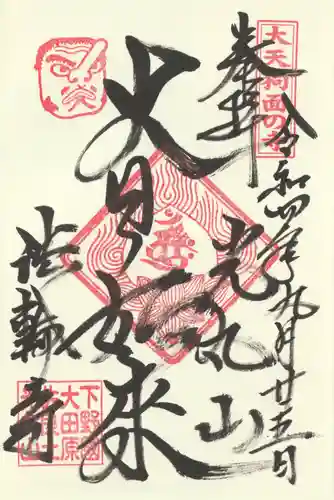 大天狗面の寺
奉拝
令和四年九月廿五日
大日如来
光丸山
法輪寺
下野国
大田原